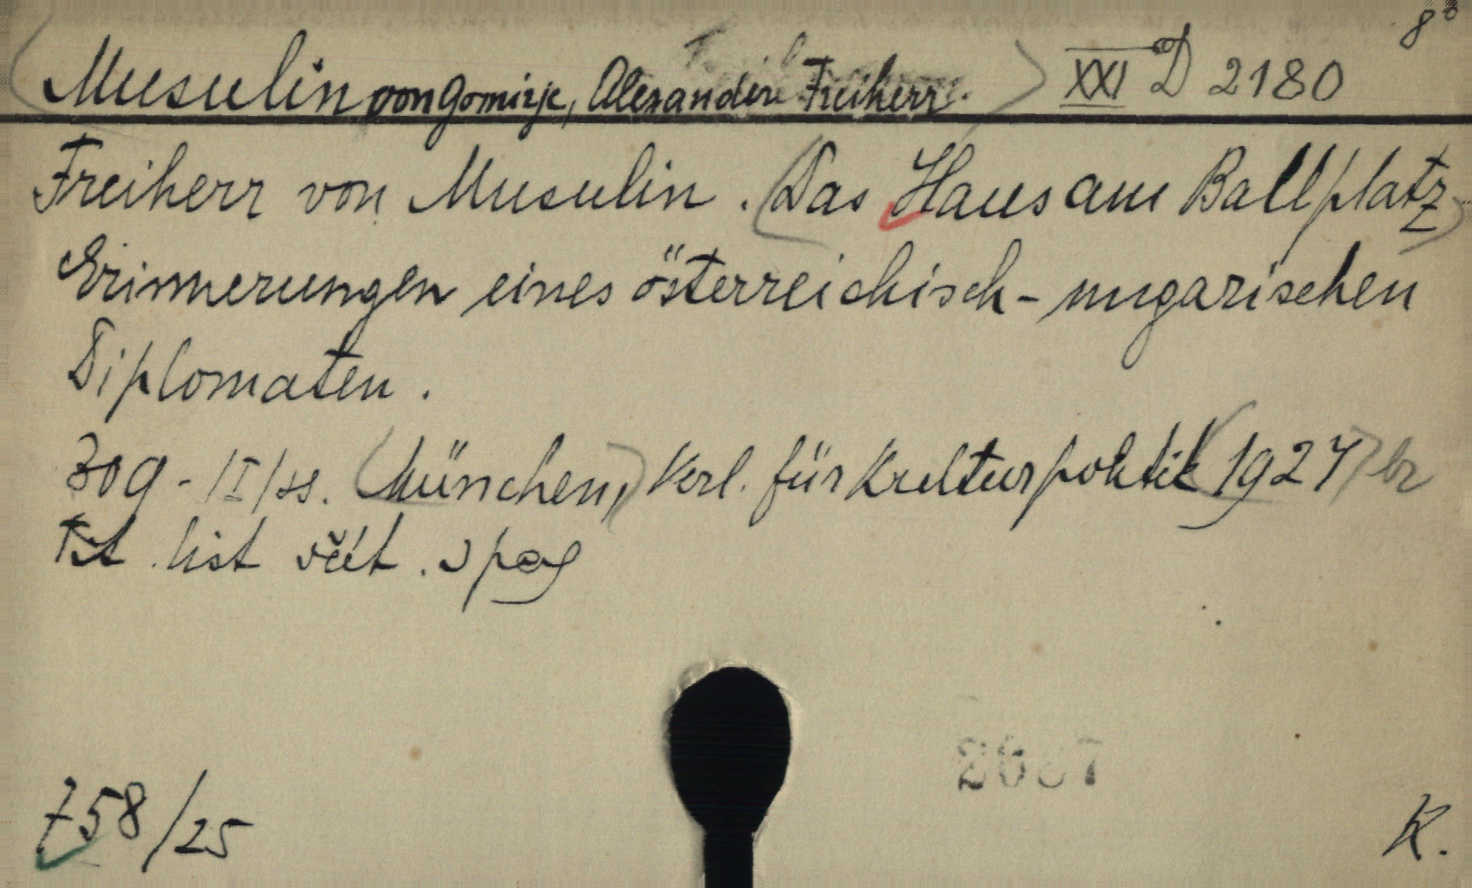 8°
Musulin von Gomirje, Alexander Freiherr. XXI D 2180
Freiherr von Musulin. (Das Haus am Ballplatz)
Erinnerungen eines österreichisch-ungarischen
Diplomaten.
309 - /I/ ss. (München,) Verl. für Kulturpolitik (1924) br
Tit list včít. v pag
758/25
K.